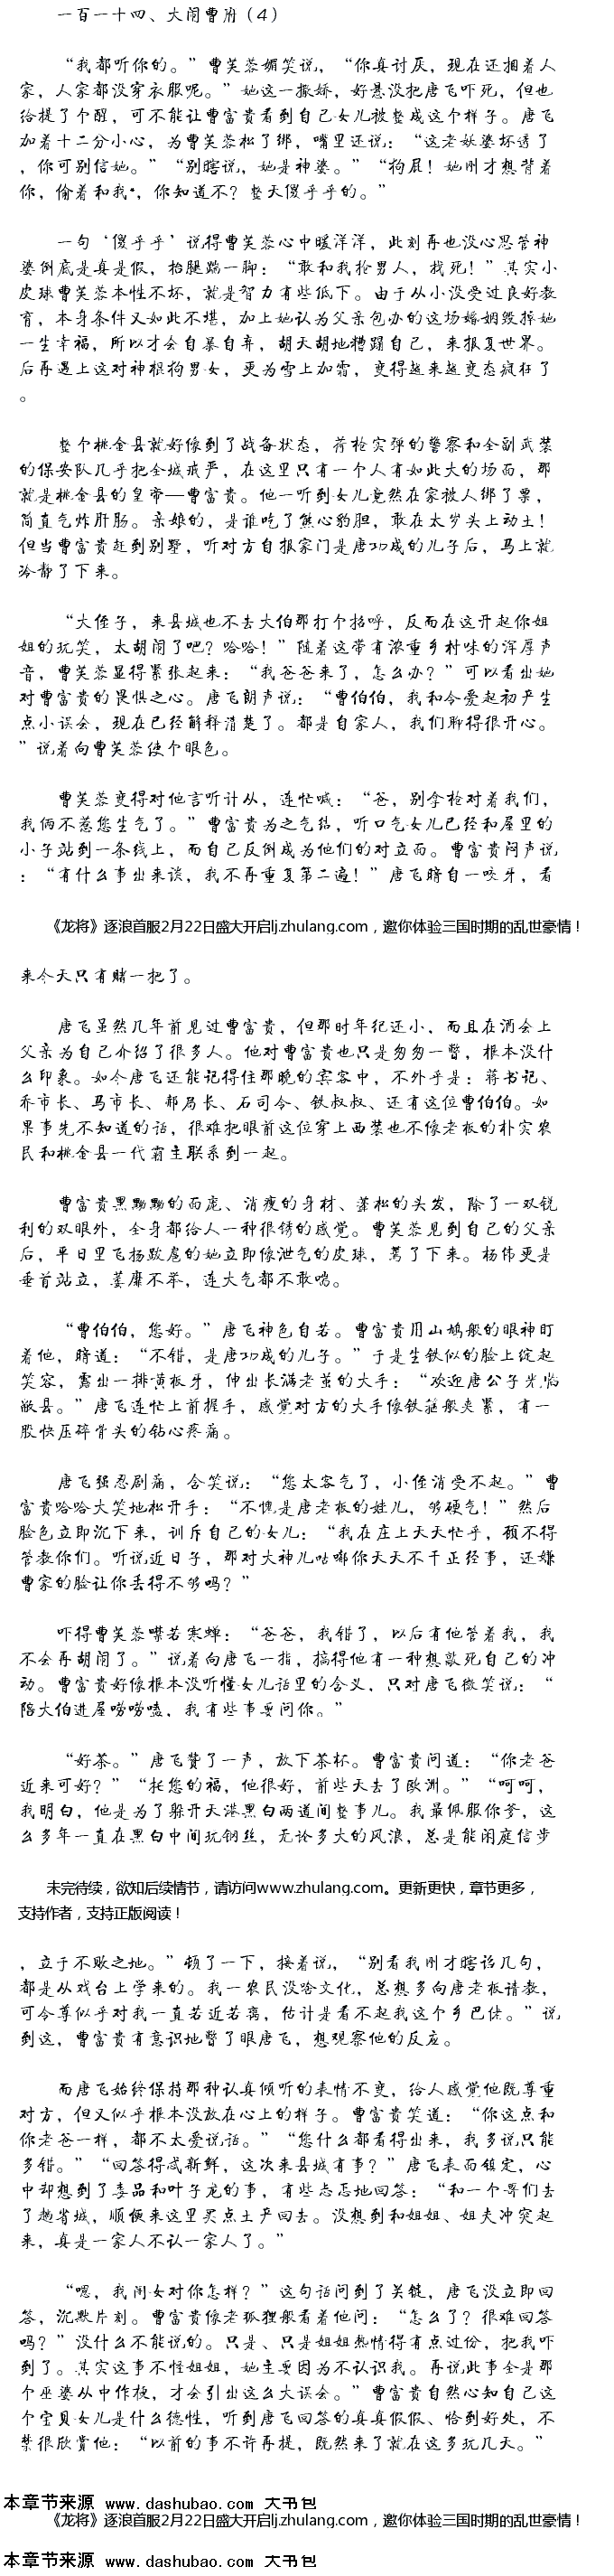 一百一十四、大闹曹府（4）
“我都听你的。”曹芙蓉媚笑说，“你真讨厌，现在还捆着人
家，人家都没穿衣服呢。”她这一撒娇，好悬没把唐飞吓死，但也
给提了个醒，可不能让曹富贵看到自己女儿被整成这个样子。唐飞
加着十二分小心，为曹芙蓉松了绑，嘴里还说：“这老妖婆坏透了
，你可别信她。”“别瞎说，她是神婆。”“狗屁！她刚才想背着
你，偷着和我·，你知道不？整天傻乎乎的。”
一句‘傻乎乎’说得曹芙蓉心中暖洋洋，此刻再也没心思管神
婆倒底是真是假，抬腿踹一脚：“敢和我抢男人，找死！”其实小
皮球曹芙蓉本性不坏，就是智力有些低下。由于从小没受过良好教
育，本身条件又如此不堪，加上她认为父亲包办的这场婚姻毁掉她
一生幸福，所以才会自暴自弃，胡天胡地糟蹋自己，来报复世界。
后再遇上这对神棍狗男女，更为雪上加霜，变得越来越变态疯狂了
。
整个桃金县就好像到了战备状态，荷枪实弹的警察和全副武装
的保安队几乎把全城戒严，在这里只有一个人有如此大的场面，那
就是桃金县的皇帝—曹富贵。他一听到女儿竟然在家被人绑了票，
简直气炸肝肠。亲娘的，是谁吃了熊心豹胆，敢在太岁头上动土！
但当曹富贵赶到别墅，听对方自报家门是唐功成的儿子后，马上就
冷静了下来。
“大侄子，来县城也不去大伯那打个招呼，反而在这开起你姐
姐的玩笑，太胡闹了吧？哈哈！”随着这带有浓重乡村味的浑厚声
音，曹芙蓉显得紧张起来：“我爸爸来了，怎么办？”可以看出她
对曹富贵的畏惧之心。唐飞朗声说：“曹伯伯，我和令爱起初产生
点小误会，现在已经解释清楚了。都是自家人，我们聊得很开心。
”说着向曹芙蓉使个眼色。
曹芙蓉变得对他言听计从，连忙喊：“爸，别拿枪对着我们，
我俩不惹您生气了。”曹富贵为之气结，听口气女儿已经和屋里的
小子站到一条线上，而自己反倒成为他们的对立面。曹富贵闷声说
：“有什么事出来谈，我不再重复第二遍！”唐飞暗自一咬牙，看
《龙将》逐浪首服2月22日盛大开启lj.zhulang.com，邀你体验三国时期的乱世豪情！
来今天只有赌一把了。
唐飞虽然几年前见过曹富贵，但那时年纪还小，而且在酒会上
父亲为自己介绍了很多人。他对曹富贵也只是匆匆一瞥，根本没什
么印象。如今唐飞还能记得住那晚的宾客中，不外乎是：蒋书记、
乔市长、马市长、郝局长、石司令、铁叔叔、还有这位曹伯伯。如
果事先不知道的话，很难把眼前这位穿上西装也不像老板的朴实农
民和桃金县一代霸主联系到一起。
曹富贵黑黝黝的面庞、消瘦的身材、蓬松的头发，除了一双锐
利的双眼外，全身都给人一种很锈的感觉。曹芙蓉见到自己的父亲
后，平日里飞扬跋扈的她立即像泄气的皮球，蔫了下来。杨伟更是
垂首站立，萎靡不举，连大气都不敢喘。
“曹伯伯，您好。”唐飞神色自若。曹富贵用山鸠般的眼神盯
着他，暗道：“不错，是唐功成的儿子。”于是生铁似的脸上绽起
笑容，露出一排黄板牙，伸出长满老茧的大手：“欢迎唐公子光临
敝县。”唐飞连忙上前握手，感觉对方的大手像铁箍般夹紧，有一
股快压碎骨头的钻心疼痛。
唐飞强忍剧痛，含笑说：“您太客气了，小侄消受不起。”曹
富贵哈哈大笑地松开手：“不愧是唐老板的娃儿，够硬气！”然后
脸色立即沉下来，训斥自己的女儿：“我在庄上天天忙乎，顾不得
管教你们。听说近日子，那对大神儿咕嘟你天天不干正经事，还嫌
曹家的脸让你丢得不够吗？”
吓得曹芙蓉噤若寒蝉：“爸爸，我错了，以后有他管着我，我
不会再胡闹了。”说着向唐飞一指，搞得他有一种想敲死自己的冲
动。曹富贵好像根本没听懂女儿话里的含义，只对唐飞微笑说：“
陪大伯进屋唠唠嗑，我有些事要问你。”
“好茶。”唐飞赞了一声，放下茶杯。曹富贵问道：“你老爸
近来可好？”“托您的福，他很好，前些天去了欧洲。”“呵呵，
我明白，他是为了躲开天港黑白两道间整事儿。我最佩服你爹，这
么多年一直在黑白中间玩钢丝，无论多大的风浪，总是能闲庭信步
未完待续，欲知后续情节，请访问www.zhulang.com。更新更快，章节更多，
支持作者，支持正版阅读！
，立于不败之地。”顿了一下，接着说，“别看我刚才瞎诌几句，
都是从戏台上学来的。我一农民没啥文化，总想多向唐老板请教，
可令尊似乎对我一直若近若离，估计是看不起我这个乡巴佬。”说
到这，曹富贵有意识地瞥了眼唐飞，想观察他的反应。
而唐飞始终保持那种认真倾听的表情不变，给人感觉他既尊重
对方，但又似乎根本没放在心上的样子。曹富贵笑道：“你这点和
你老爸一样，都不太爱说话。”“您什么都看得出来，我多说只能
多错。”“回答得忒新鲜，这次来县城有事？”唐飞表面镇定，心
中却想到了毒品和叶子龙的事，有些忐忑地回答：“和一个哥们去
了越省城，顺便来这里买点土产回去。没想到和姐姐、姐夫冲突起
来，真是一家人不认一家人了。”
“嗯，我闺女对你怎样？”这句话问到了关键，唐飞没立即回
答，沉默片刻。曹富贵像老狐狸般看着他问：“怎么了？很难回答
吗？”没什么不能说的。只是、只是姐姐热情得有点过份，把我吓
到了。其实这事不怪姐姐，她主要因为不认识我。再说此事全是那
个巫婆从中作梗，才会引出这么大误会。”曹富贵自然心知自己这
个宝贝女儿是什么德性，听到唐飞回答的真真假假、恰到好处，不
禁很欣赏他：“以前的事不许再提，既然来了就在这多玩几天。”
本章节来源 www.dashubao.com 大书包
《龙将》逐浪首服2月22日盛大开启lj.zhulang.com，邀你体验三国时期的乱世豪情！
本章节来源 www.dashubao.com 大书包